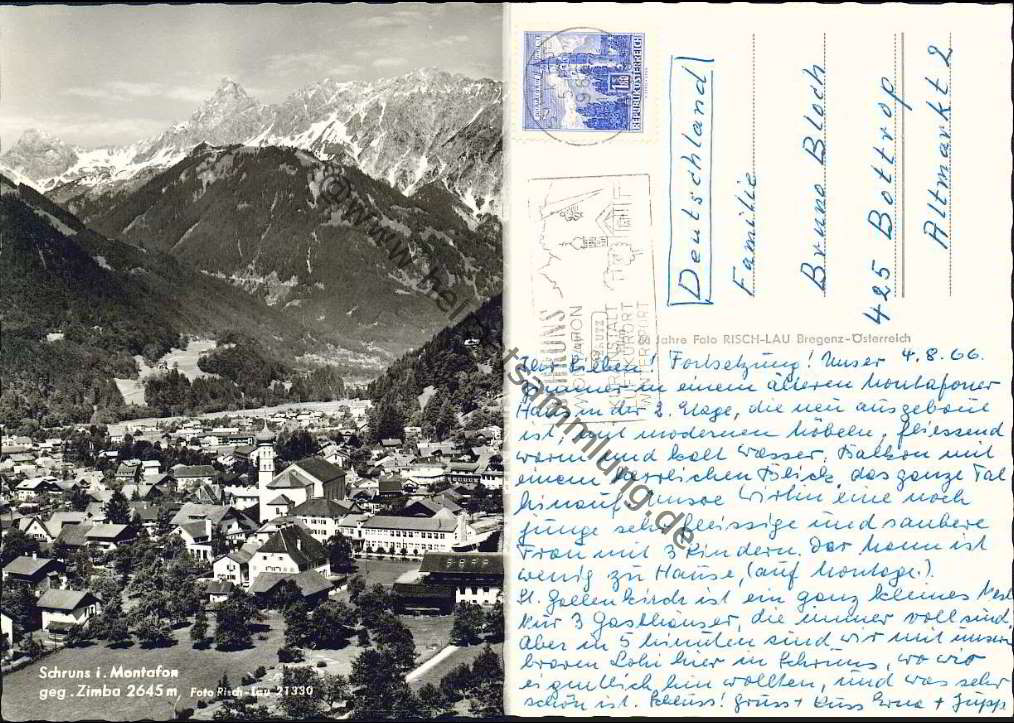 Schruns i. Montafon
geg. Zimba 2645 m, Foto Risch-Lau 21330
REPUBLIK ÖSTERREICH
SCHRUNS
MONTAFON
KURORT
Deutschland
Familie
Bruno Bloch
425 Bottrop
Altmarkt 2
Jahre Foto RISCH-LAU Bregenz-Österreich
Ihr Lieben! Fortsetzung! Unser 4.8.66.
in einem älteren Montafoner
Haus, in der 2. Etage, die neu ausgebaut
ist, mit modernen Möbeln, fliessend
warm und kalt Wasser, Balkon mit
einem herrlichen Blick, das ganze Tal
hinauf, unsre Wirtin eine noch
junge sehr fleissige und saubere
Frau mit 3 Kindern. Der Mann ist
wenig zu Hause, (auf Montage.)
St. Gallenkirch ist ein ganz kleines Nest
nur 3 Gasthäuser, die immer voll sind.
Aber in 5 Minuten sind wir mit unserm
braven Lohi hier in Schruns, wo wir
eigentlich hin wollten, und was sehr
schön ist. Schluss! Gruss + Kuss Erna + Jupp